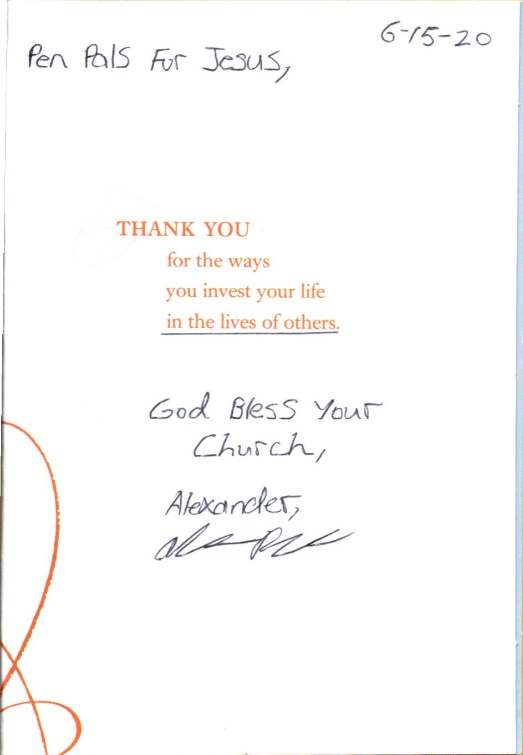 6-15-20
Pen Pals For Jesus,
THANK YOU
for the ways
you invest your life
in the lives of others.
God Bless Your
Church,
Alexander,